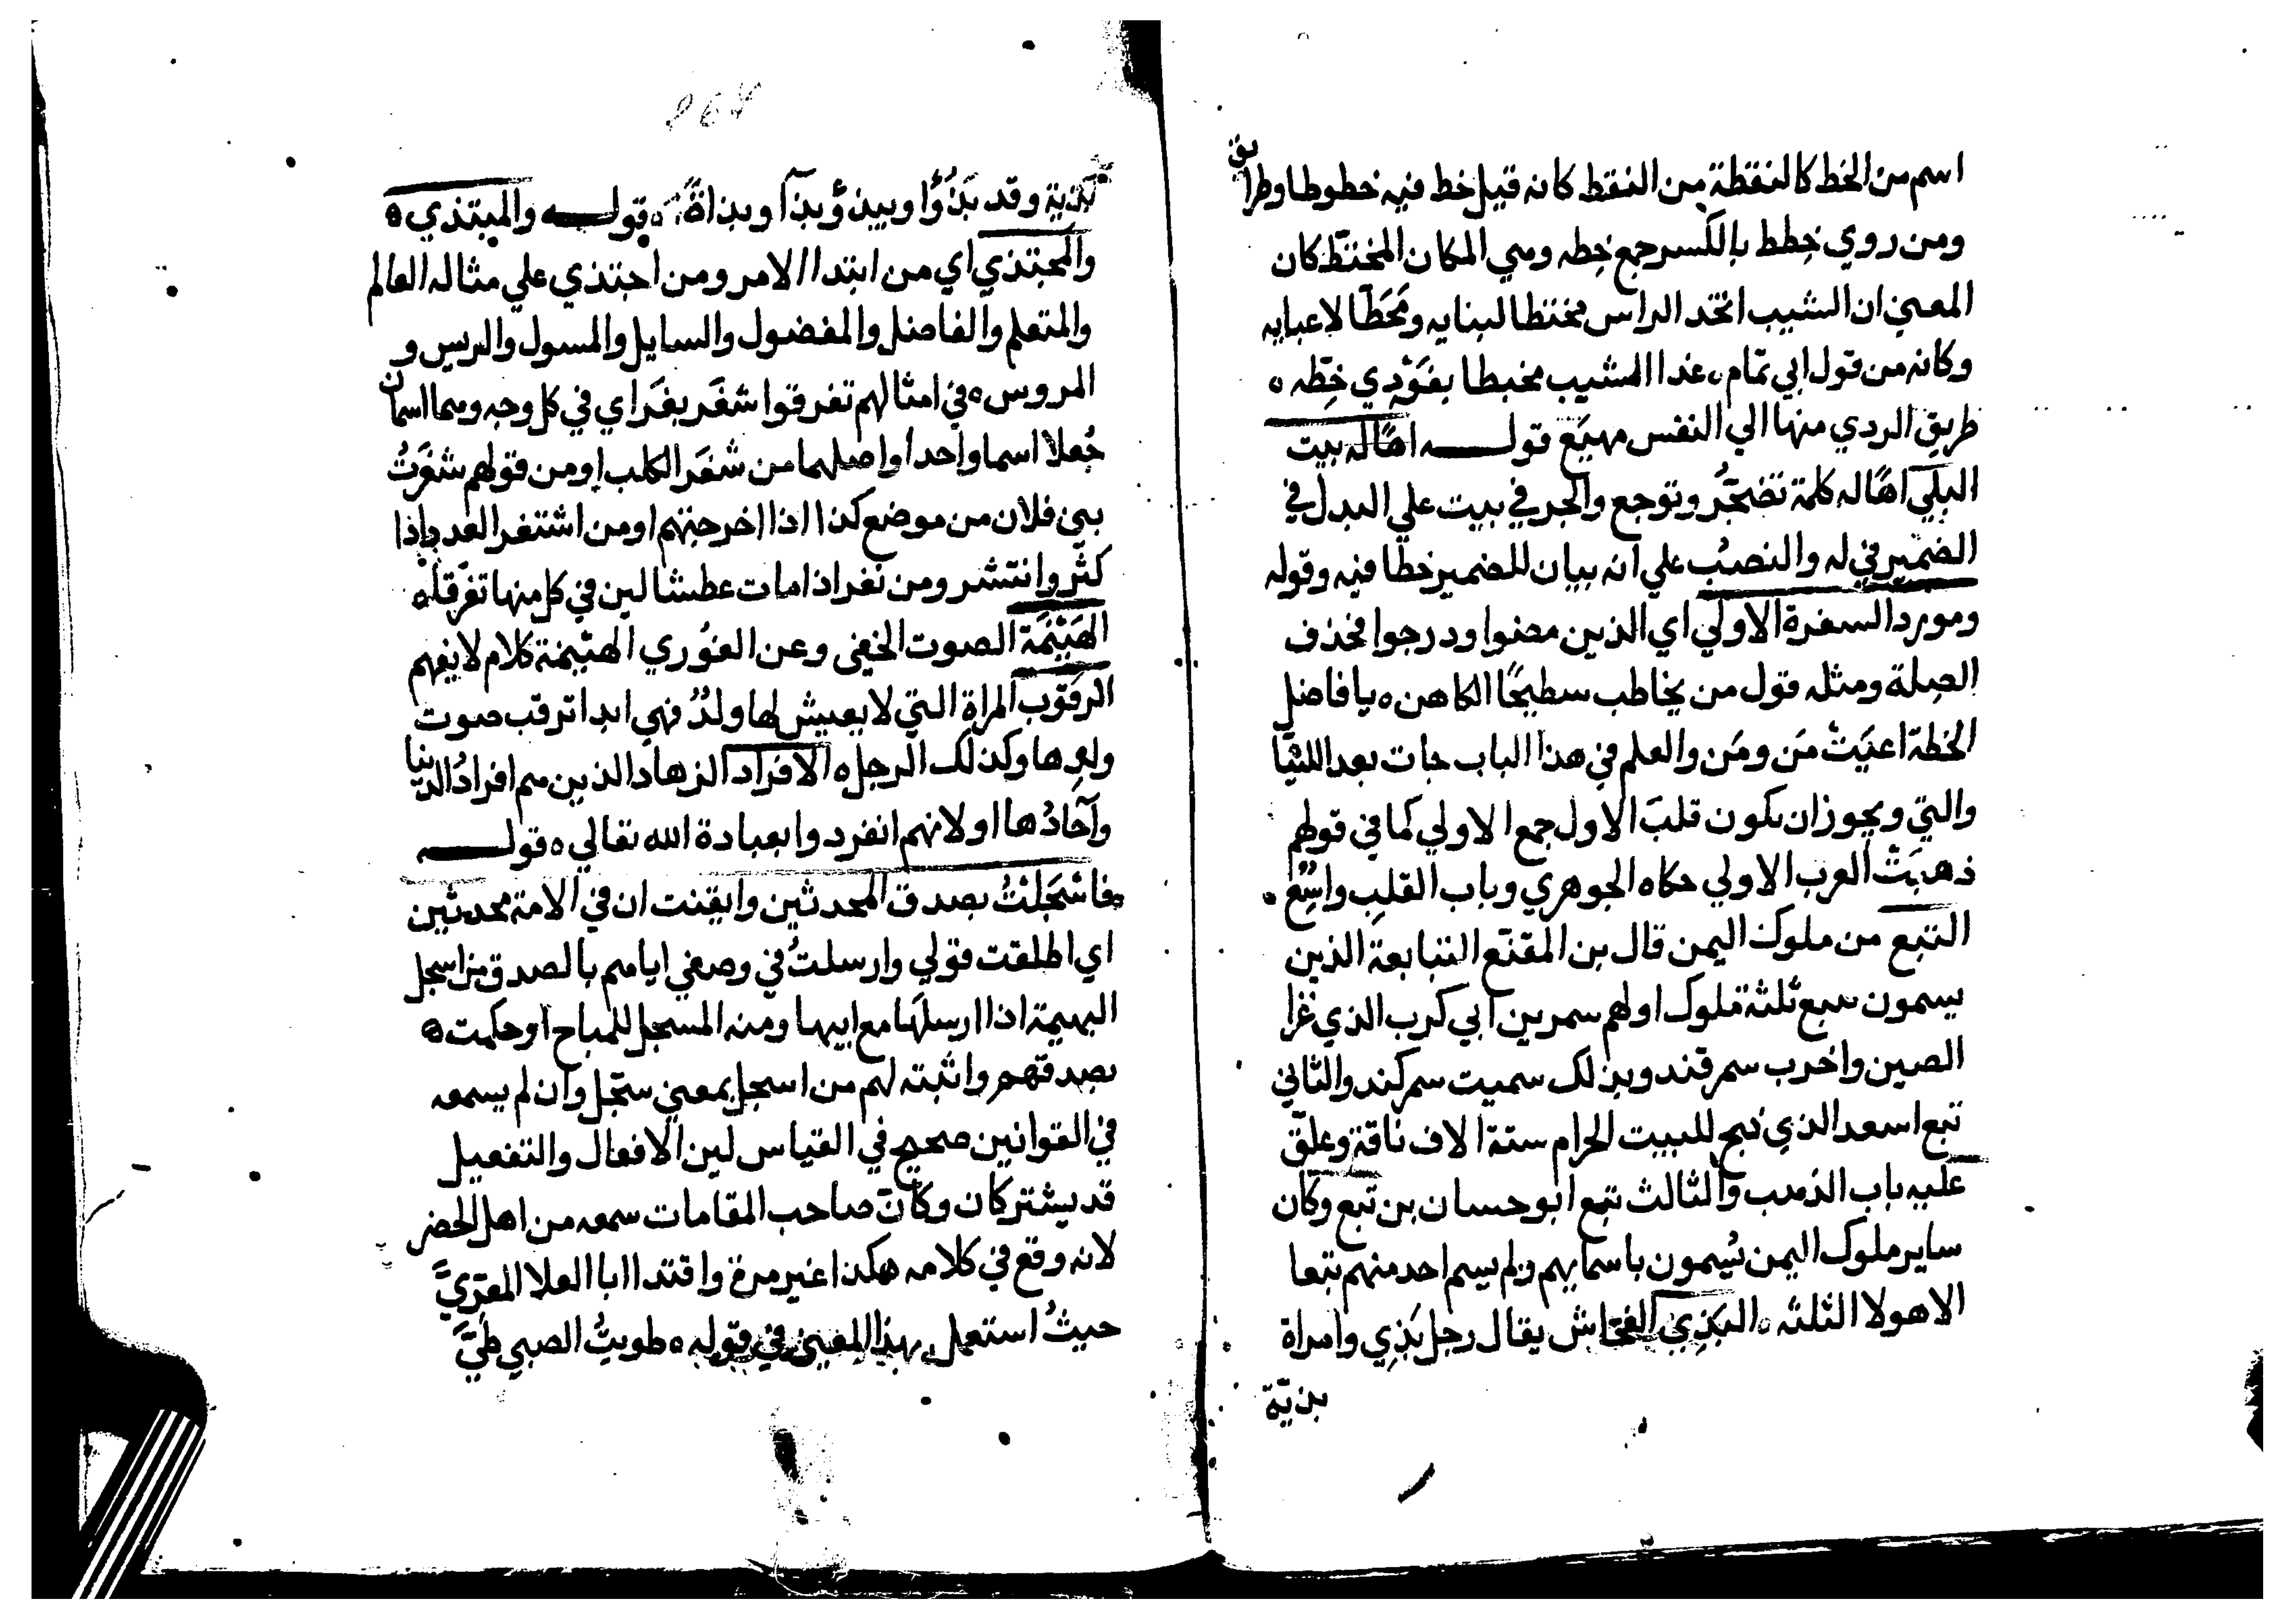 اسم من الخط كالنقطة من النقط كانه قيل خط فيه خطوطا وطرايق
ومن روي خِطط بالكسر جمع خِطه وسمي المكان المختطّ كان
المعني ان الشيب اتخد الراس مختطا لبنايه ومَحَطّا لاعبايه
وكانه من قول ابي تمام ه غدا المشيب مختطا بفَوْدِي خِطّه ه
طريق الردي منها الي النفس مهيَع قولـــه اهًا له بيت
البِلَي اهًا له كلمة تضجُّر وتوجع والجر في بيت علي البدل في
الضمير في له والنصبُ علي انه بيان للضمير خطا فيه وقوله
ومورد السفرة الاولي اي الذين مضوا ودرجوا فحذف
الصلة ومثله قول من يخاطب سطيحًا الكاهن ه يا فاضل
الخطة اعيَتْ مَن ومَن والعلم في هذا الباب جات بعد اللتيّا
والتي ويجوز ان يكون قلبَ الاول جمع الاولي كما في قولهم
ذهبَتْ العرب الاولي حكاه الجوهري وباب القلبِ واسِعٌ ه
التبع من ملوك اليمن قال بن المقنّع التبابعة الذين
يسمون تبع ثلثة ملوك اولهم سمر بن ابي كرب الذي غزا
الصين واخرب سمرقند وبذلك سميت سمركند والثاني
تبع اسعد الذي ذبح للبيت الحرام ستة الاف ناقة وعلّق
عليه باب الذهب والثالث تبع ابو حسان بن تبع وكان
ساير ملوك اليمن يُسمون باسمايهم ولم يسم احد منهم تبعا
الا هولا الثلثه ه البَذِي الفحّاش يقال رجل بَذِي وامراة
بذيّة
بَذِية وقد بَذُؤَا ويبذؤُ بذَآ وبذاةً ه قولـــه والمبتدي ه
والمجتذي اي من ابتدا الامر ومن احتذي علي مثاله العالم
والمتعلم والفاضل والمفضول والسايل والمسول والريس و
المروس ه في امثالهم تفرقوا شغَر بغَر اي في كل وجه وهما اسمان
جُعلا اسما واحدا واصلهما من شغَر الكلب او من قولهم شغَرتُ
بني فلان من موضع كذا اذا اخرجتهم او من اشتغر العدد اذا
كثُر وانتشر ومن نغر اذا مات عطشا لين في كل منها تفرّقا ه
الهَيْنَمَة الصوت الخفي وعن الغُوري الهَيْنمة كلام لا يفهم
الرقوب المراة التي لا يعيش لها ولدٌ فهي ابدا ترقب صوت
ولدها وكذلك الرجل ه الافراد الزهاد الذين هم افرادُ الدنيا
وآحَادُها او لانهم انفردوا بعبادة الله تعالي ه قولـــه
فاسْجَلْتُ بصدق المحدثين وايقنت ان في الامة محدثين
اي اطلقت قولي وارسلتُ في وصفي اياهم بالصدق من اسجل
البهيمة اذا ارسلها مع ابيها ومنه المسجل للمباح او حكمت ه
بصدقهم واثبته لهم من اسجل بمعني سجّل وان لم يسمعه
في القوانين صحيح في القياس لين الافعال والتفعيل
قد يشتركان وكانّ صاحب المقامات سمعه من اهل الحضر
لانه وقع في كلامه هكذا غير مرة واقتدا ابا العلا المعرّيَّ
حيثُ استعمل بهذا المعني في قوله ه طويتُ الصبي طيَّ